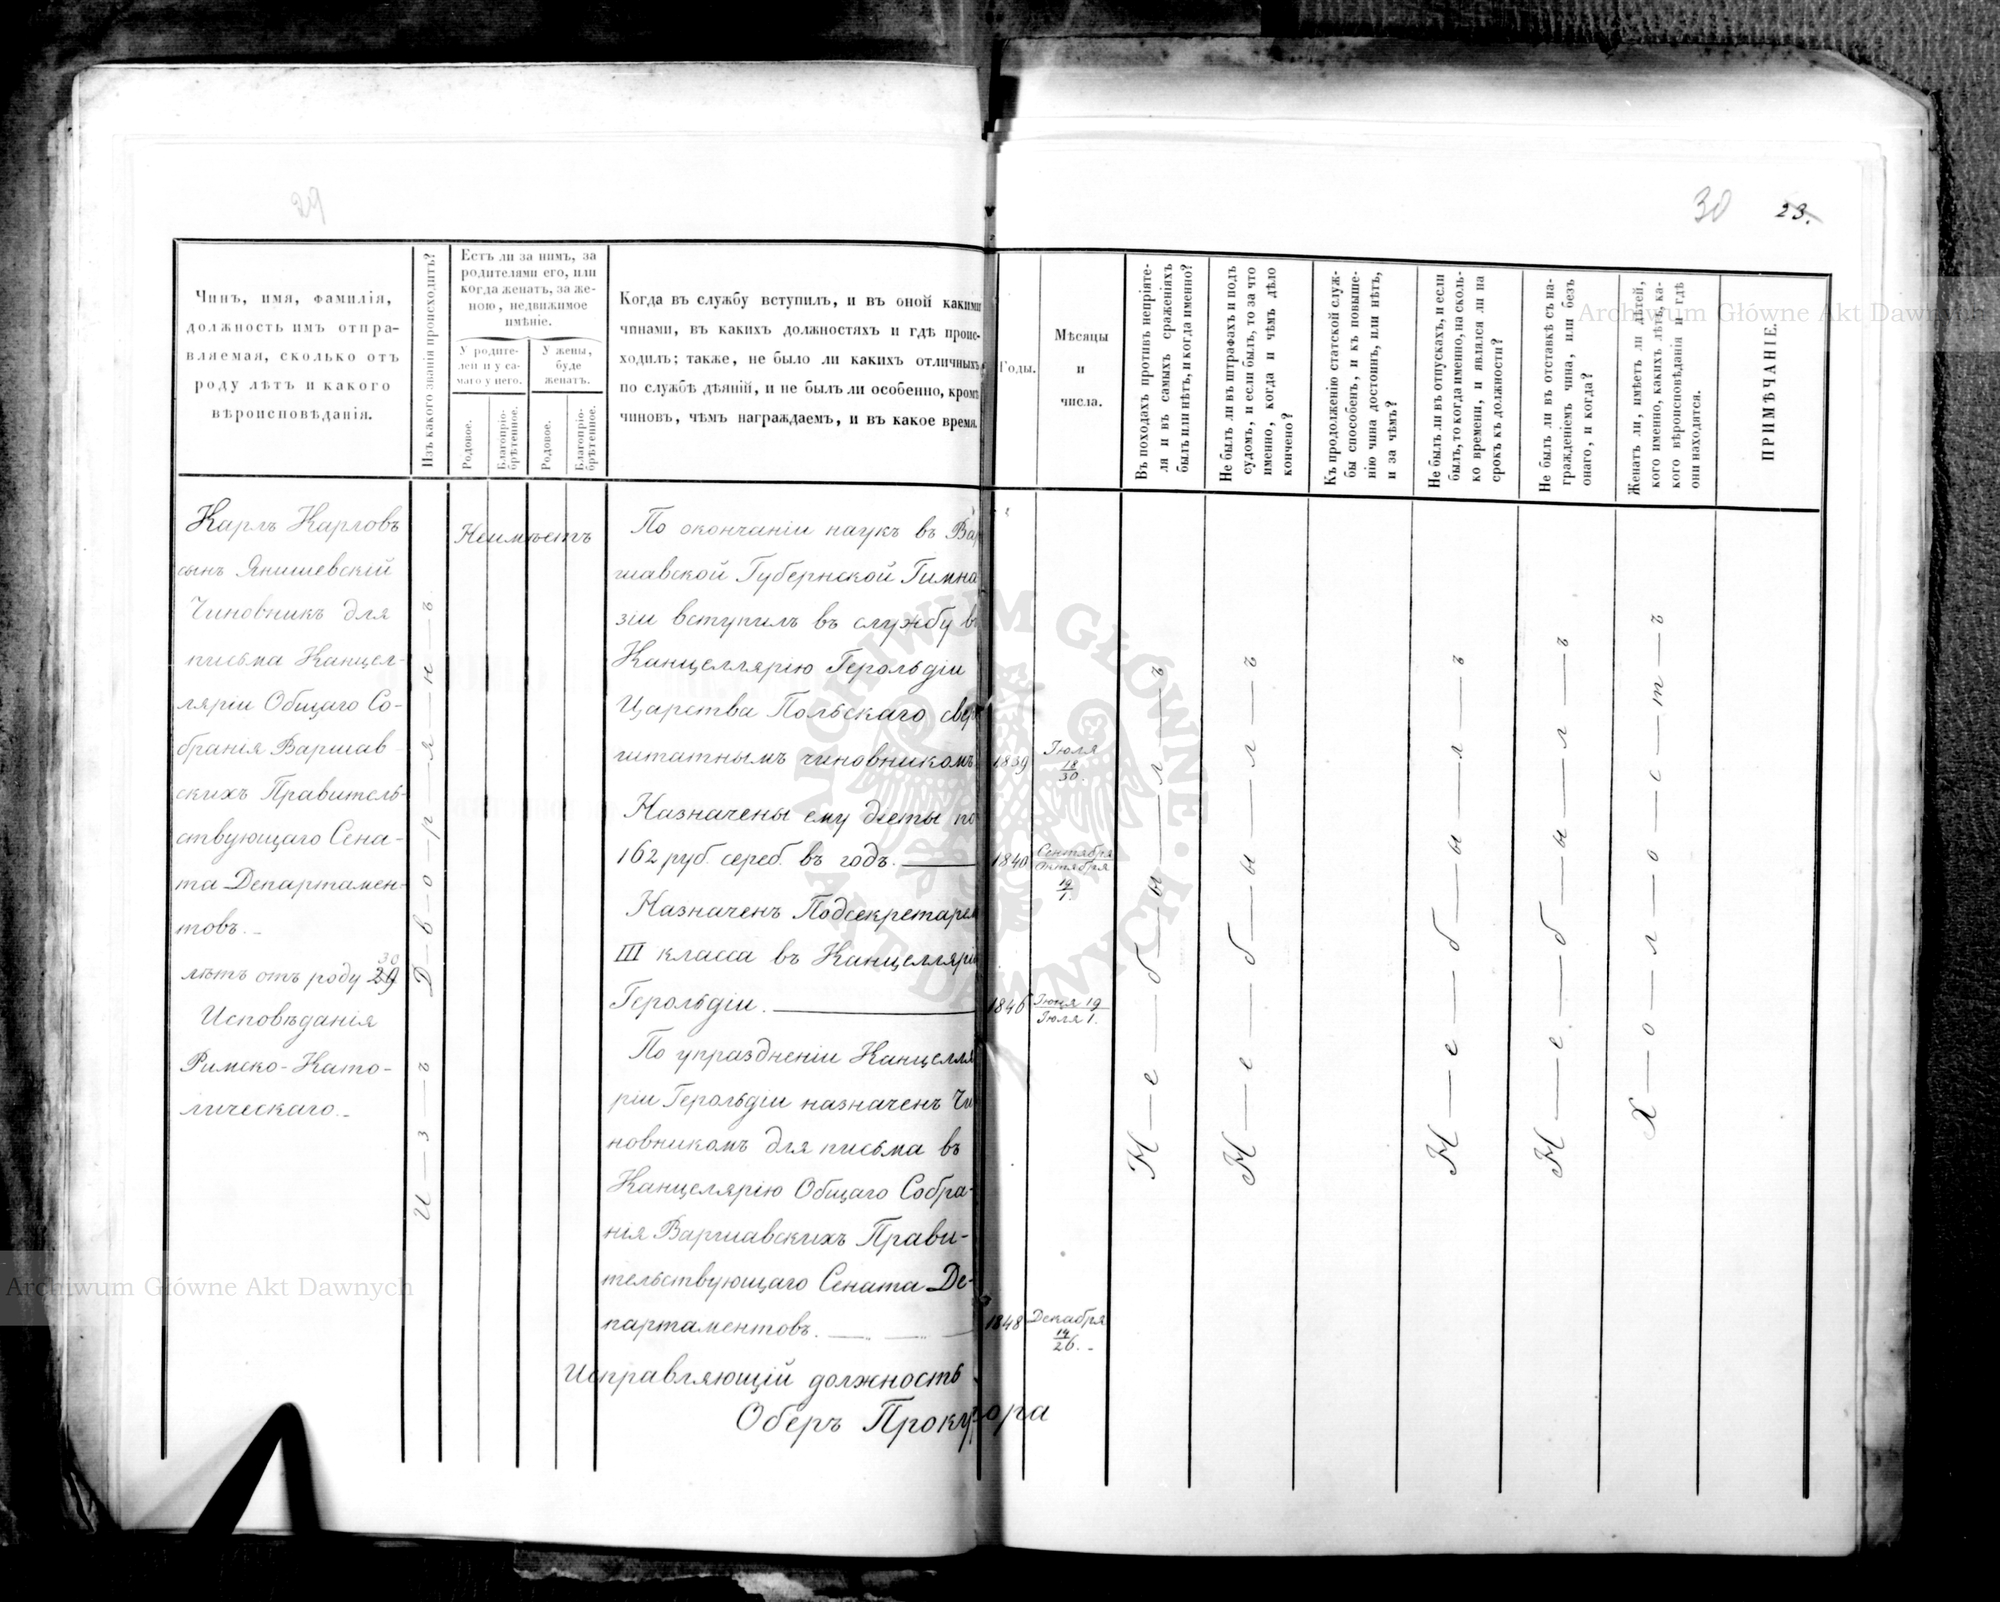 29
30
23.
Чинъ, имя, фамилія,
должность имъ отпра-
вляемая, сколько отъ
роду лѣтъ и какого
вѣроисповѣданія.
Изъ какого званія происходитъ?
Есть ли за нимъ, за
родителями его, или
когда женатъ, за же-
ною, недвижимое
имѣніе.
У родите-
лей и у са-
маго у него.
У жены,
буде
женатъ.
Родовое.
Благопріо-
брѣтенное.
Родовое.
Благопріо-
брѣтенное.
Когда въ службу вступилъ, и въ оной какими
чинами, въ какихъ должностяхъ и гдѣ проис-
ходилъ; также, не было ли какихъ отличныхъ
по службѣ дѣяній, и не былъ ли особенно, кромѣ
чиновъ, чѣмъ награждаемъ, и въ какое время.
Годы.
Мѣсяцы
и
числа.
Въ походахъ противъ непріяте-
ля и въ самыхъ сраженіяхъ
былъ или нѣтъ, и когда именно?
Не былъ ли въ штрафахъ и подъ
судомъ, и если былъ, то за что
именно, когда и чѣмъ дѣло
кончено?
Къ продолженію статской служ-
бы способенъ, и къ повыше-
нію чина достоинъ, или нѣтъ,
и за чѣмъ?
Не былъ ли въ отпускахъ, и если
былъ, то когда именно, на сколь-
ко времени, и являлся ли на
срокъ къ должности?
Не былъ ли въ отставкѣ съ на-
гражденіемъ чина, или безъ
онаго, и когда?
Женатъ ли, имѣетъ ли дѣтей,
кого именно, какихъ лѣтъ, ка-
кого вѣроисповѣданія и гдѣ
они находятся.
ПРИМѢЧАНІЕ.
Карлъ Карловъ
сынъ Янишевскій
Чиновникъ для
письма Канцел-
ляріи Общаго Со-
бранія Варшав-
скихъ Правитель-
ствующаго Сена-
та Департамен-
товъ.
30
лѣтъ отъ роду 29
Исповѣданія
Римско-Като-
лическаго.
И—з—ъ Д—в—о—р—я—н—ъ.
Неимѣетъ
По окончаніи наукъ въ Вар
шавской Губернской Гимна
зіи вступилъ въ службу въ
Канцеллярію Герольдіи
Царства Польскаго сверх
штатнымъ чиновникомъ
1839
Іюля
18
30.
Назначены ему діеты по
162 руб. сереб. въ годъ.
1840
Сентября
Октября
19
1.
Назначенъ Подсекретарем
III класса въ Канцелляріи
Герольдіи.
1846
Іюня 19
Іюля 1.
По упраздненіи Канцелля
ріи Герольдіи назначенъ Чи
новникомъ для письма въ
Канцелярію Общаго Собра-
нія Варшавскихъ Прави-
тельствующаго Сената Де-
партаментовъ.
1848
Декабря
14
26.
Н—е—б—ы—л—ъ
Н—е—б—ы—л—ъ
Н—е—б—ы—л—ъ
Н—е—б—ы—л—ъ
Х—о—л—о—с—т—ъ
Исправляющій должность
Оберъ Прокурора
Archiwum Główne Akt Dawnych
Archiwum Główne Akt Dawnych
ARCHIWUM GŁÓWNE AKT DAWNYCH